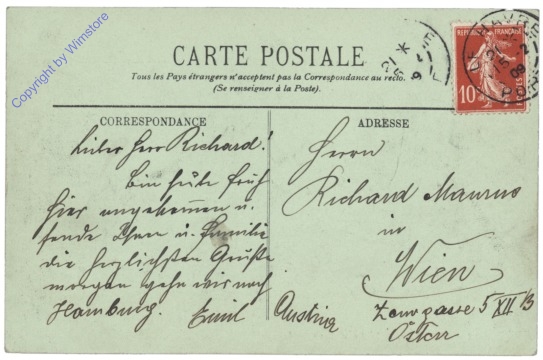 Copyright by Wimstore
CARTE POSTALE
Tous les Pays étrangers n'acceptent pas la Correspondance au recto.
(Se renseigner à la Poste).
REPUBLIQUE FRANÇAISE
10
POSTES
21 *
5
9
21
5
09
CORRESPONDANCE
Lieber Herr Richard!
Bin heute früh
hier angekommen u.
sende Ihnen u. Familie
die herzlichsten Grüße
morgen gehn wir nach
Hamburg. Emil
ADRESSE
Herrn
Richard Maurus
in
Wien
5 XII/3
Austria
Österr